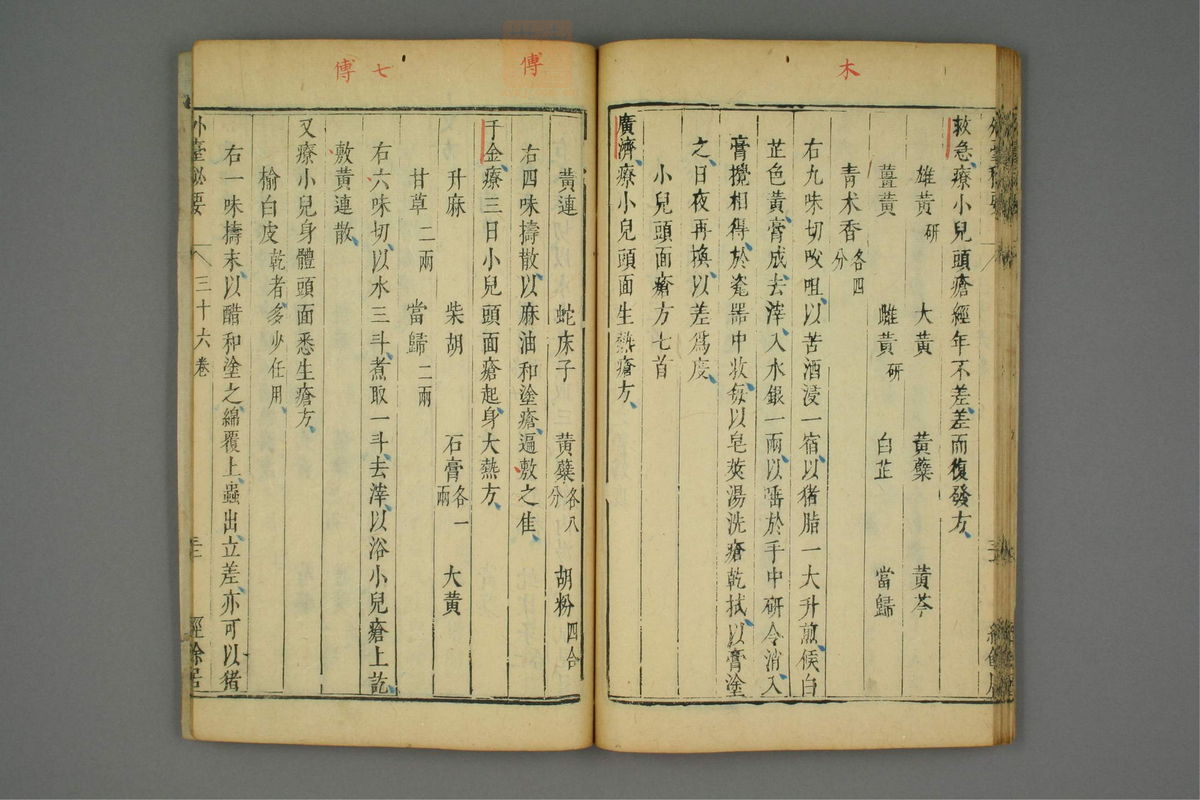 木
救急療小兒頭瘡經年不差差而復發方
雄黃研 大黃 黃蘗 黃芩
薑黃 雌黃研 白芷 當歸
青木香各四分
右九味切㕮咀以苦酒浸一宿以猪脂一大升煎候白
芷色黃膏成去滓入水銀一兩以唾於手中研令消入
膏攪相得於瓷器中收每以皂莢湯洗瘡乾拭以膏塗
之日夜再換以差爲度
小兒頭面瘡方七首
廣濟療小兒頭面生熱瘡方
傅
七
傅
黃連 蛇床子 黃蘗各八分 胡粉四合
右四味擣散以麻油和塗瘡逼敷之佳
千金療三日小兒頭面瘡起身大熱方
升麻 柴胡 石膏各一兩 大黃
甘草二兩 當歸二兩
右六味切以水三斗煮取一斗去滓以浴小兒瘡上訖
敷黃連散
又療小兒身體頭面悉生瘡方
榆白皮乾者多少任用
右一味擣末以醋和塗之綿覆上蟲出立差亦可以猪
外臺秘要 三十六卷 經餘居